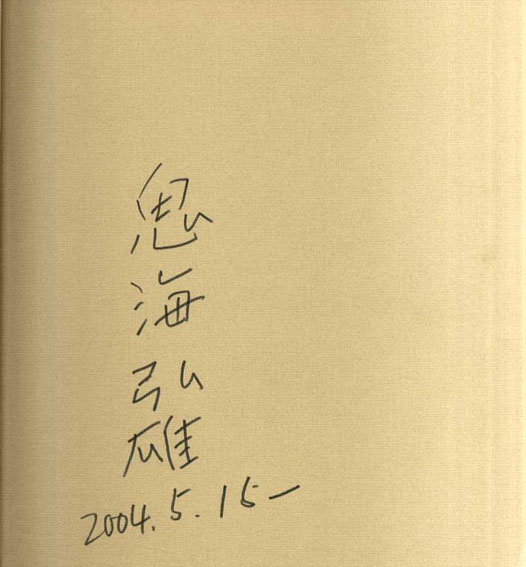 鬼海弘雄
2004.5.15